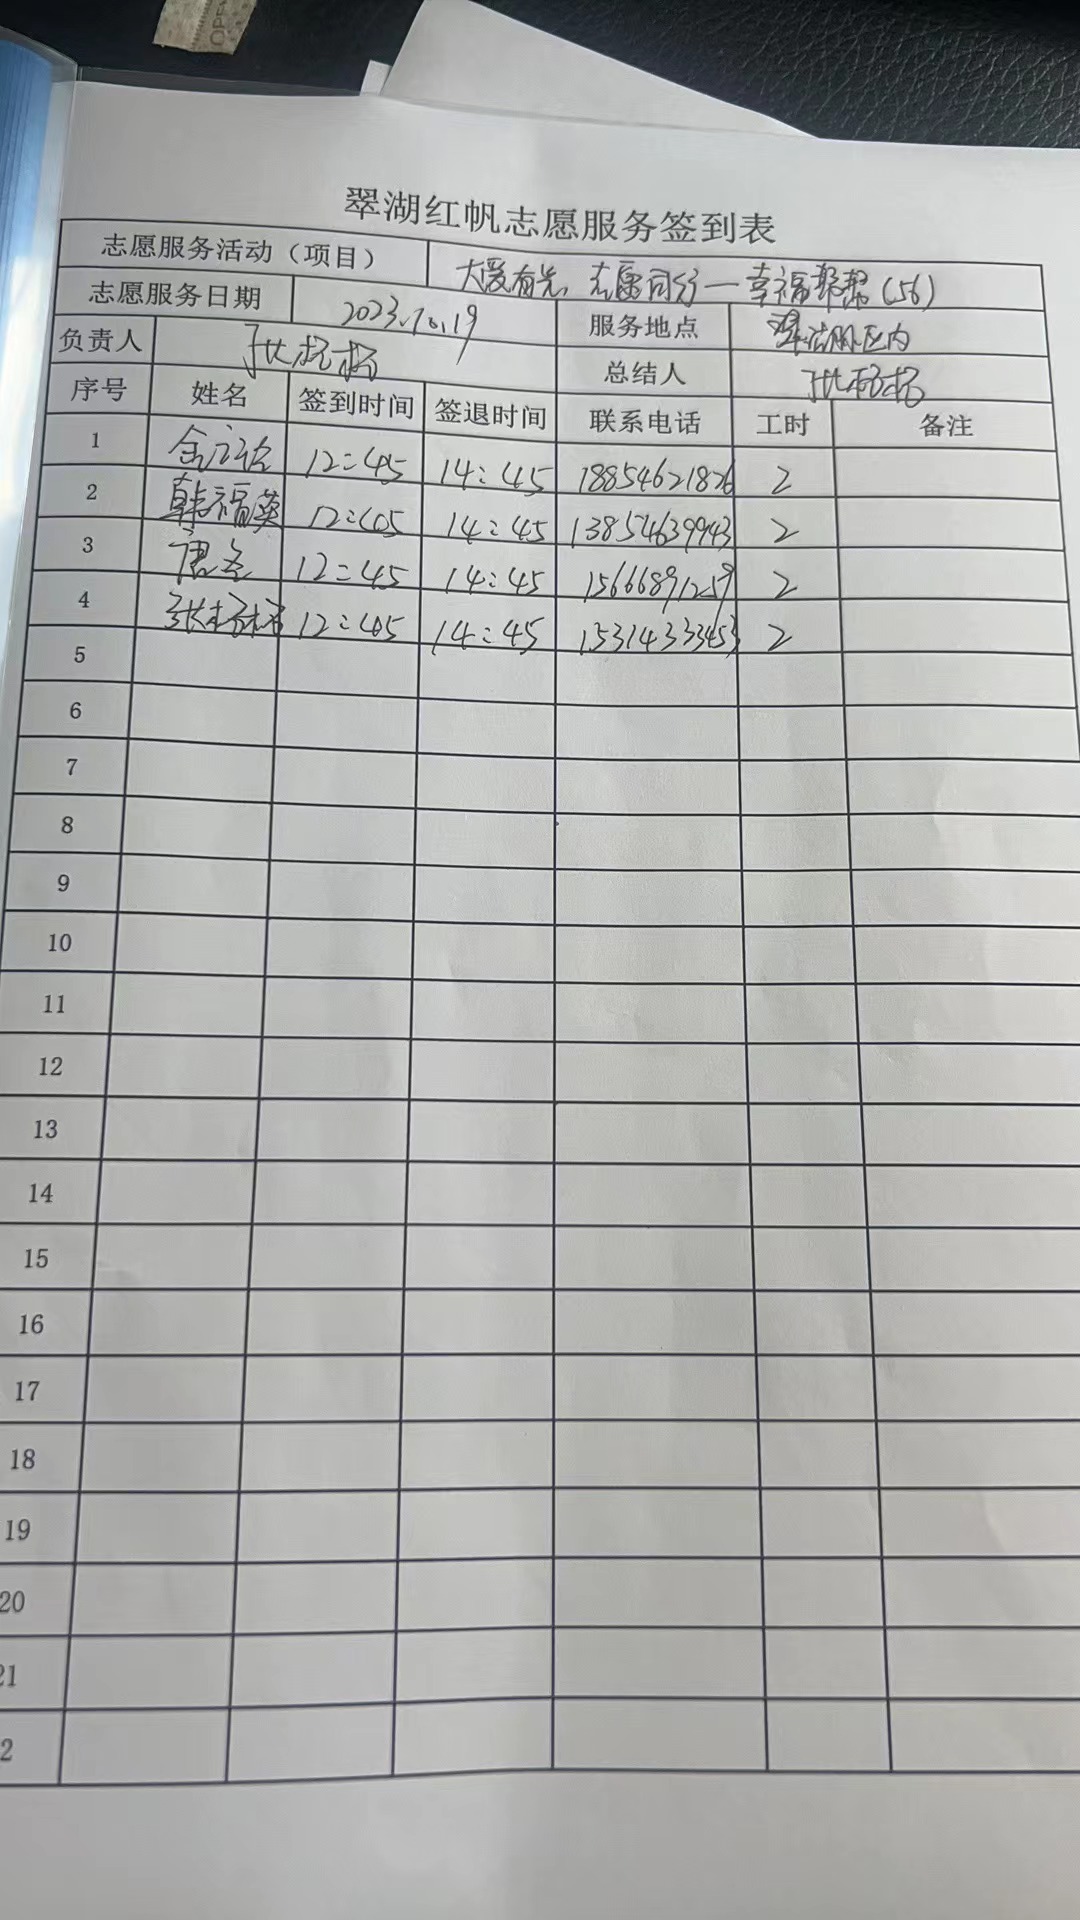 翠湖红帆志愿服务签到表
志愿服务活动（项目） 大爱有光，志愿同行一幸福聚帮（56）
志愿服务日期 2023.10.19 服务地点 翠湖小区内
负责人 张杨杨 总结人 张杨杨
序号 姓名 签到时间 签退时间 联系电话 工时 备注
1 12:45 14:45 18854621826 2
2 韩福英 12:45 14:45 13854639943 2
3 12:45 14:45 15666891259 2
4 张杨杨 12:45 14:45 15314333453 2
5
6
7
8
9
10
11
12
13
14
15
16
17
18
19
20
21
2